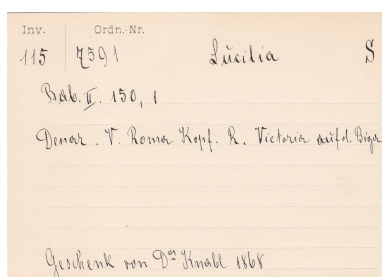 Inv. Ordn.-Nr.
115 7591 Lucilia S
Bab. II. 150, 1
Denar. V. Roma Kopf. R. Victoria auf d. Biga
Geschenk von Dor Knabl 1868